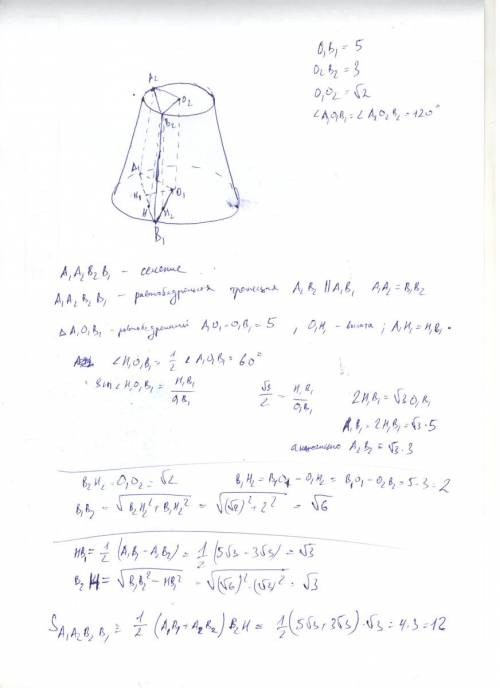 O₁B₁ = 5
O₂B₂ = 3
O₁O₂ = √2
∠A₁O₁B₁ = ∠A₂O₂B₂ = 120°
A₂
O₂
B₂
A₁
O₁
H₁
H
H₂
B₁
A₁A₂B₂B₁ – сечение
A₁A₂B₂B₁ – равнобедренная трапеция A₂B₂ || A₁B₁ A₁A₂ = B₁B₂
△A₁O₁B₁ – равнобедренный A₁O₁ = O₁B₁ = 5 , O₁H₁ – высота ; A₁H₁ = H₁B₁
∠H₁O₁B₁ = 1/2 ∠A₁O₁B₁ = 60°
sin∠H₁O₁B₁ = H₁B₁/O₁B₁ √3/2 = H₁B₁/O₁B₁ 2H₁B₁ = √3 O₁B₁
A₁B₁ = 2H₁B₁ = √3·5
аналогично A₂B₂ = √3·3
B₂H₂ = O₁O₂ = √2 B₁H₂ = B₁O₁ – O₁H₂ = B₁O₁ – O₂B₂ = 5-3 = 2
B₁B₂ = √(B₂H₂² + B₁H₂²) = √((√2)² + 2²) = √6
HB₁ = 1/2 (A₁B₁ – A₂B₂) = 1/2 (5√3 – 3√3) = √3
B₂H = √(B₁B₂² – HB₁²) = √((√6)² – (√3)²) = √3
S A₁A₂B₂B₁ = 1/2 (A₁B₁ + A₂B₂) B₂H = 1/2 (5√3 + 3√3)·√3 = 4·3 = 12